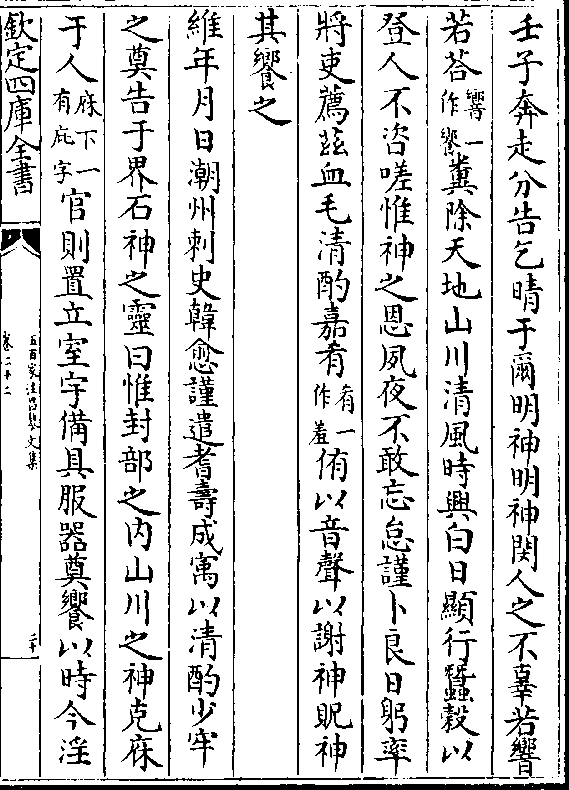 壬子奔走分告乞晴于爾明神明神閔人之不辜若響
若荅響一作饗糞除天地山川清風時興白日顯行蠶穀以
登人不咨嗟惟神之恩夙夜不敢忘怠謹卜良日躬率
將吏薦茲血毛清酌嘉肴肴一作羞侑以音聲以謝神貺神
其饗之
維年月日潮州刺史韓愈謹遣耆壽成寓以清酌少牢
之奠告于界石神之靈曰惟封部之內山川之神克庥
于人庥下一有庇字官則置立室宇備具服器奠饗以時今淫
欽定四庫全書
五百家注昌黎文集
卷二十二
二十